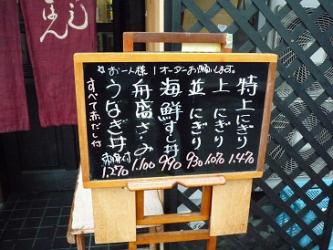 ☆お一人様一オーダーお願いします。
特上にぎり 1.470
上にぎり 1.070
並にぎり 930
海鮮すし丼 990
舟盛さしみ 1.100
うなぎ丼 1.270
すべて赤だし付